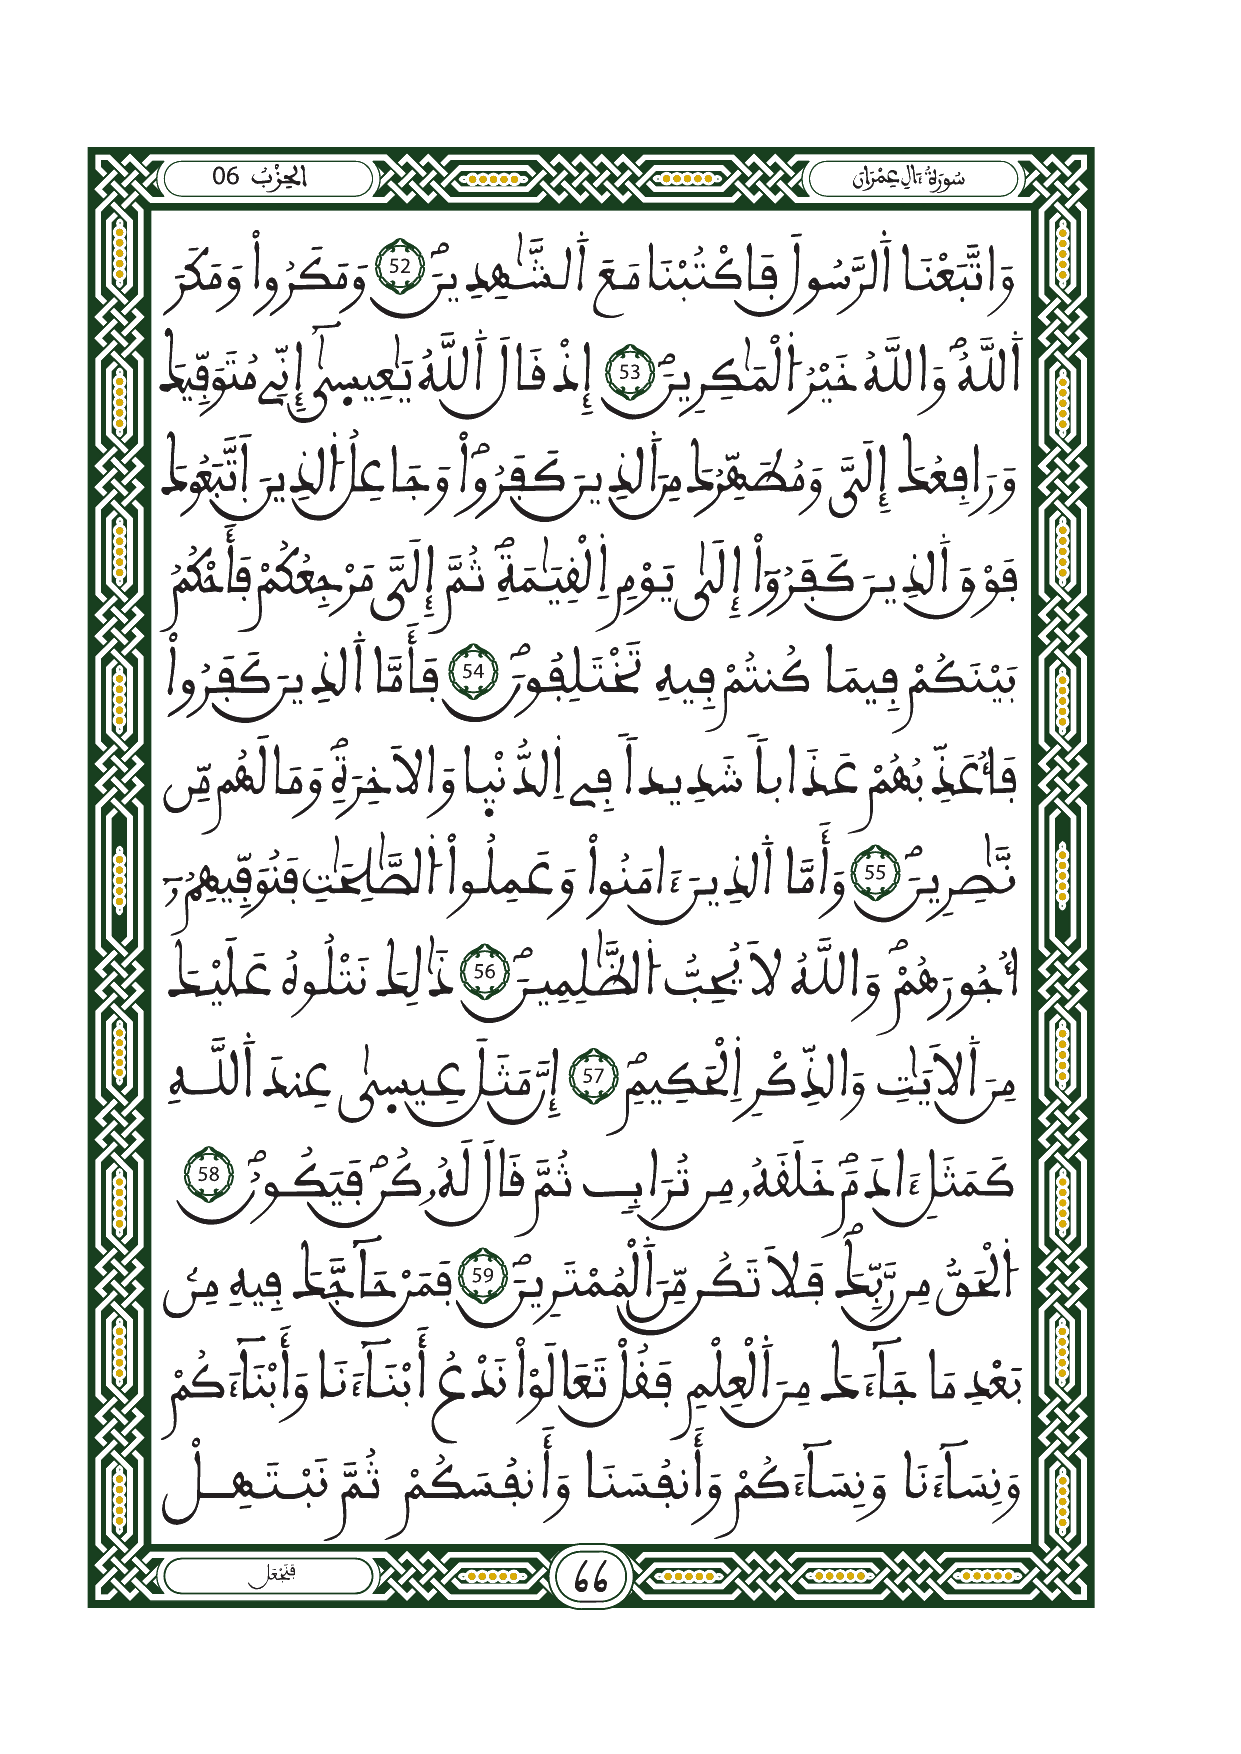 سُورَةُ ءَالِ عِمْرَانَ
الحِزْبُ 06
وَاتَّبَعْنَا اَ۬لرَّسُولَ فَاكْتُبْنَا مَعَ اَ۬لشَّٰهِدِينَۖ 52 وَمَكَرُواْ وَمَكَرَ
اَ۬للَّهُۖ وَاللَّهُ خَيْرُ اُ۬لْمَٰكِرِينَۖ 53 إِذْ قَالَ اَ۬للَّهُ يَٰعِيس۪ىٰٓ إِنِّے مُتَوَفِّيكَ
وَرَافِعُكَ إِلَىَّ وَمُطَهِّرُكَ مِنَ اَ۬لذِينَ كَفَرُواْۖ وَجَاعِلُ اُ۬لذِينَ اَ۪تَّبَعُوكَ
فَوْقَ اَ۬لذِينَ كَفَرُوٓاْ إِلَىٰ يَوْمِ اِ۬لْقِيَٰمَةِۖ ثُمَّ إِلَىَّ مَرْجِعُكُمْ فَأَحْكُمُ
بَيْنَكُمْ فِيمَا كُنتُمْ فِيهِ تَخْتَلِفُونَۖ 54 فَأَمَّا اَ۬لذِينَ كَفَرُواْ
فَأُعَذِّبُهُمْ عَذَاباٗ شَدِيداٗ فِے اِ۬لدُّنْي۪ا وَالَاخِرَةِۖ وَمَا لَهُم مِّن
نَّٰصِرِينَۖ 55 وَأَمَّا اَ۬لذِينَ ءَامَنُواْ وَعَمِلُواْ اُ۬لصَّٰلِحَٰتِ فَنُوَفِّيهِمُۥٓ
أُجُورَهُمْۖ وَاللَّهُ لَا يُحِبُّ اُ۬لظَّٰلِمِينَۖ 56 ذَٰلِكَ نَتْلُوهُ عَلَيْكَ
مِنَ اَ۬لَايَٰتِ وَالذِّكْرِ اِ۬لْحَكِيمِۖ 57 إِنَّ مَثَلَ عِيس۪ىٰ عِندَ اَ۬للَّهِ
كَمَثَلِ ءَادَمَۖ خَلَقَهُۥ مِن تُرَابٖ ثُمَّ قَالَ لَهُۥ كُنۖ فَيَكُونُۖ 58
اُ۬لْحَقُّ مِن رَّبِّكَۖ فَلَا تَكُن مِّنَ اَ۬لْمُمْتَرِينَۖ 59 فَمَنْ حَآجَّكَ فِيهِ مِنۢ
بَعْدِ مَا جَآءَكَ مِنَ اَ۬لْعِلْمِ فَقُلْ تَعَالَوْاْ نَدْعُ أَبْنَآءَنَا وَأَبْنَآءَكُمْ
وَنِسَآءَنَا وَنِسَآءَكُمْ وَأَنفُسَنَا وَأَنفُسَكُمْ ثُمَّ نَبْتَهِلْ
فَنَجْعَل
66